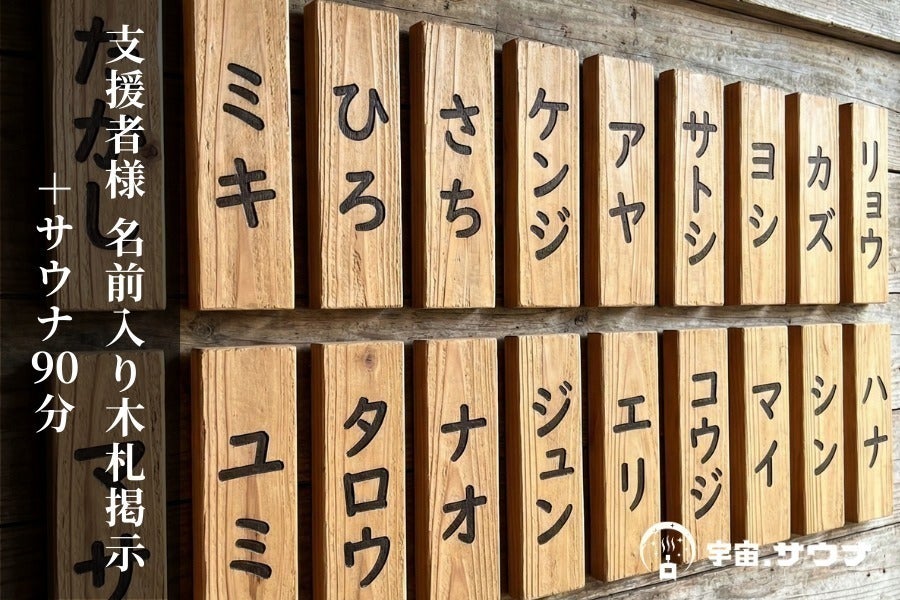 支援者様 名前入り木札掲示
＋サウナ90分
たかし
ミキ
ひろ
さち
ケンジ
アヤ
サトシ
ヨシ
カズ
リョウ
マサ
ユミ
タロウ
ナオ
ジュン
エリ
コウジ
マイ
シン
ハナ
宇宙.サウナ